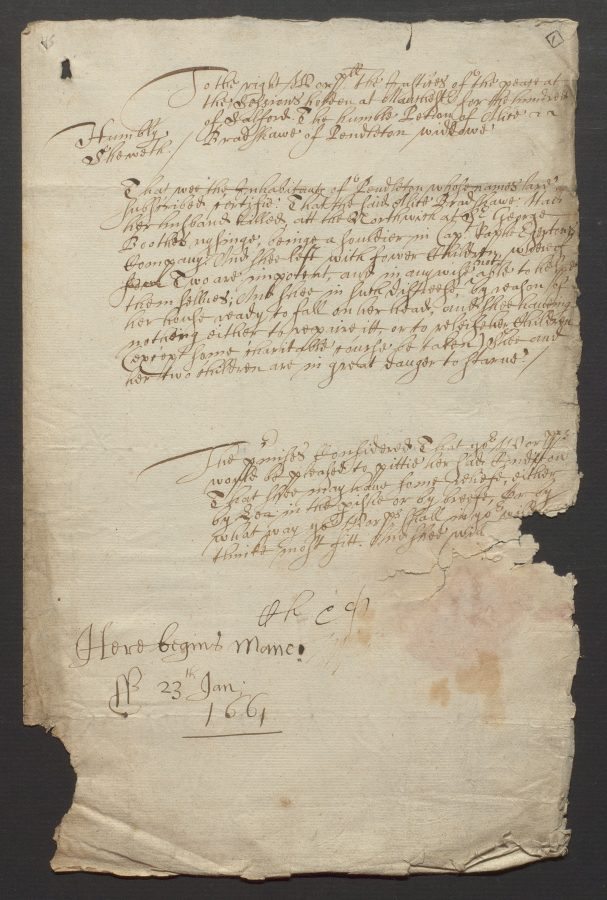 To the right Wor:pll the Justices of the peace at
the Sessions holden at Manchestr for the hundred
of Salford The humble Petition of Alice
Bradshawe of Pendleton widdowe
Humbly
Sheweth /
That wee the Inhabitants of Pendleton whose names are
subscribed certifie: That the said Alice Bradshawe had
her husband killed att the Northwich at Sr George
Boothes rysinge, beinge a souldier in Capt Egerton
Company And shee left with fower Children, wheof
Two are impotent, and in any wise able to helpe
themselves; And shee in such distresse, by reason of
her house ready to fall on her head, and shee haveing
nothing either to repaire itt, or to releive her Children
(except some charitable course be taken) Shee and
her two children are in great danger to starve: /
The prmises Considered That yor Worpps
would be pleased to pittie her sad Condition
That shee may have some releife, either
by in the or by breefe, or by
what way yor Worpps shall in yor
thinke most fitt. And shee will
Here begins Manc:
23th Jan:
1661